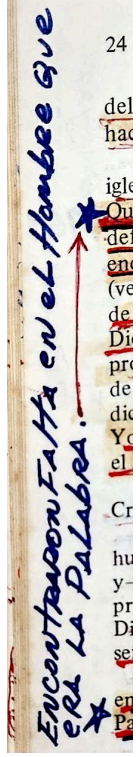 ENCONTRARON FALTA EN EL HOMBRE QUE
ERA LA PALABRA.
24
del
hac
igle
Qu
def
enc
(ve
de
Dic
pro
de
dic
Yo
el
Cr
hu
y-
pr
Di
se
en
Pa